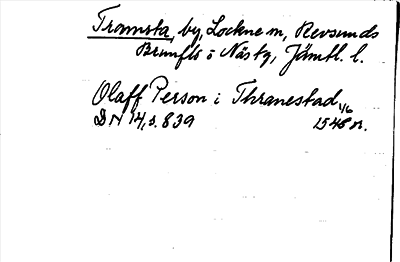 Tramsta, by, Lockne sn, Revsunds
Brunflo o Näs tg, Jämtl. l.
Olaff Person i Thranestad 1/6
DN 14, s. 839 1548 or.